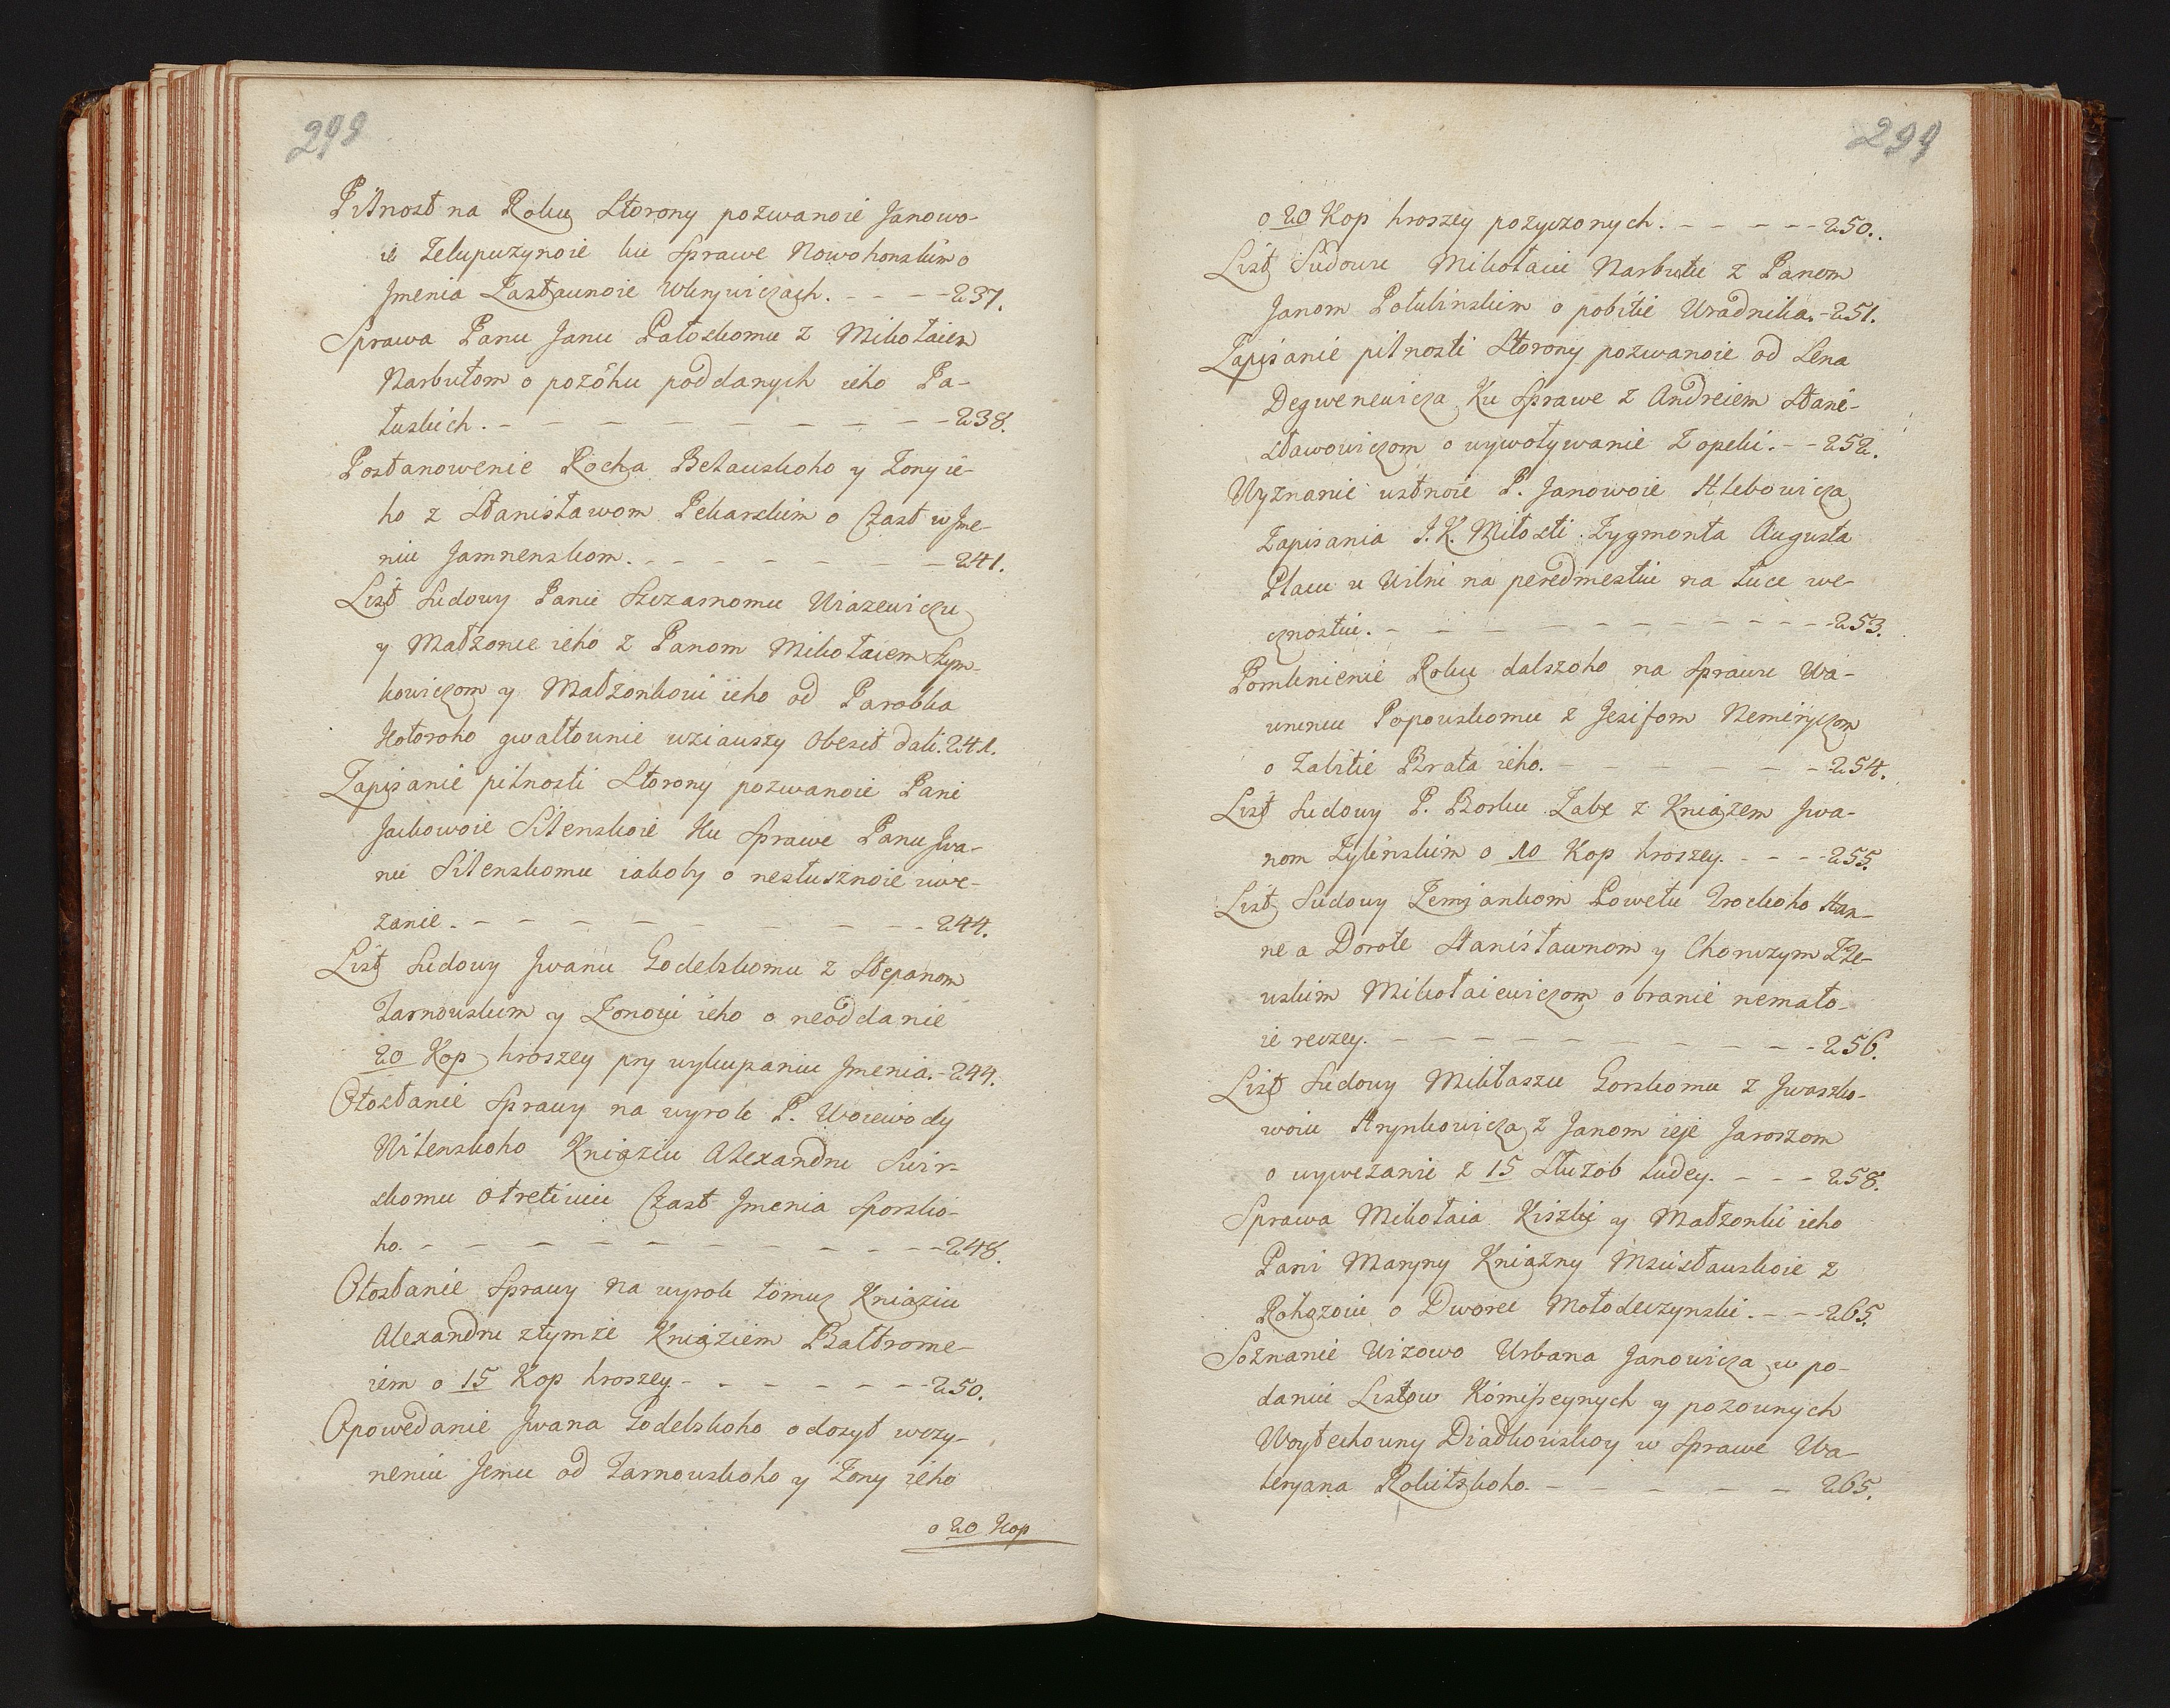 298
Pilnost na Roku Storony pozwanoie Janowo-
ie Zelupużynoie ku Sprawe Nowohonskim o
Jmenia Zastaunoie Wkrywiczach. - - - - 237.
Sprawa Panu Janu Patoskomu z Mikołaiem
Narbutom o pozohu poddanych ieho Pa-
tuskich. - - - - - - - - - 238.
Postanowenie Rocha Bełauskoho y Żony ie-
ho z Stanisławom Pekarskim o Czast w Jme-
niu Jamnenskom. - - - - - - - 241.
List Sudowy Panu Szczasnomu Wiazewiczu
y Małżonce ieho z Panom Mikołaiem Szym-
kowiczom y Małżonkoiu ieho od Parobka
Kotoroho gwałtownie wziauszy Obesit dali. 241.
Zapisanie pilnosti Storony pozwanoie Pani
Jackowoie Sitenskoie Ku Sprawe Panu Jwa-
nu Sitenskomu iakoby o nesłusznoie uwe-
zanie. - - - - - - - - - 244.
List Sudowy Jwanu Godebskomu z Stepanom
Tarnouskim y Żonoiu ieho o neoddanie
20 Kop hroszey pry wykupaniu Jmenia. - 244.
Otosłanie Sprawy na wyrok P. Woiewody
Wilenskoho Kniaziu Alexandru Swir-
skomu o tretiuiu Czast Jmenia Sporsko-
ho. - - - - - - - - - - 248.
Otosłanie Sprawy na wyrok tomuz Kniaziu
Alexandru z tymże Kniaziem Bałtrome-
iem o 15 Kop hroszey. - - - - - - 250.
Opowedanie Jwana Godebskoho o dosyt uczy-
neniu Jemu od Tarnouskoho y Żony ieho
o 20 Kop
299
o 20 Kop hroszey pożyczonych. - - - - 250.
List Sudowu Mikołaiu Narbutu z Panom
Janom Potulinskim o pobitie Uradnika. - 251.
Zapisanie pilnosti Storony pozwanoie od Lena
Degwenewicza Ku Sprawe z Andreiem Stani-
sławowiczom o wywoływanie z opeki. - - 252.
Wyznanie ustnoie P. Janowoie Hlebowicza
Zapisania J. K. Miłosti Zygmonta Augusta
Placu u Wilni na peredmestiu na Łuce we-
cznostiu. - - - - - - - - - 253.
Pomknienie Roku dalszoho na Sprawu Wa-
wneniu Popouskomu z Jesifom Nemiryczom
o Zabitie Brata ieho. - - - - - - 254.
List Sudowy P. Borku Zabe z Kniazem Jwa-
nom Żylinskim o 10 Kop hroszey. - - - 255.
List Sudowy Zemiankom Powetu Trockoho Han-
ne a Dorote Stanisławnom y Chorużym Żże-
uskim Mikołaiewiczom o branie nemało-
ie reczey. - - - - - - - - - 256.
List Sudowy Mikitaszu Gorskomu z Jwaszko-
woiu Hrynkowicza z Janom ieje Jaroszom
o wywezanie z 15 Służob Ludey. - - - 258.
Sprawa Mikołaia Kiszki y Małżonki ieho
Pani Maryny Kniazny Mscisłauskoie z
Rohozoiu o Dworec Mołodeczynski. - - - 265.
Soznanie Wizowo Urbana Janowicza w po-
daniu Listow Komisseynych y pozownych
Woytechowny Diadkouskoy w Sprawe Wa-
leryana Rokitskoho. - - - - - 265.